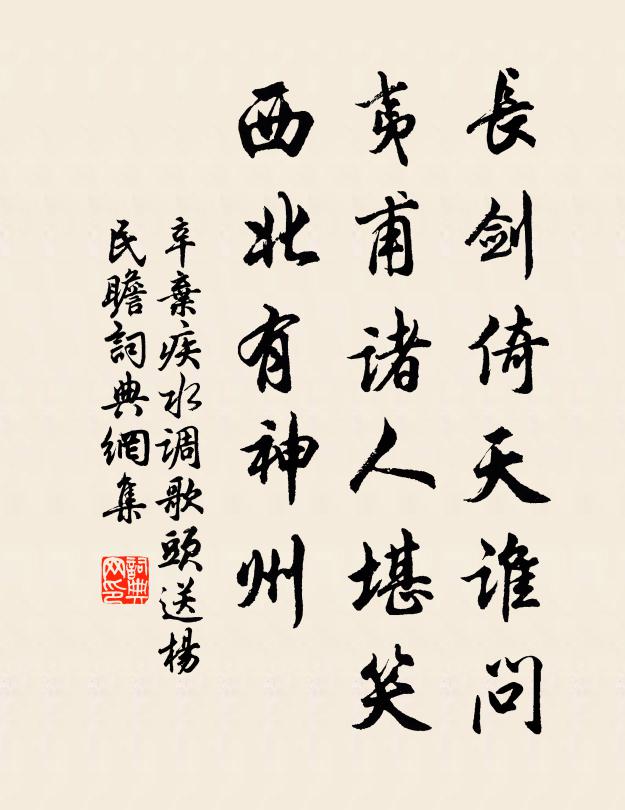 長剑倚天谁問
夷甫诸人堪笑
西北有神州
辛棄疾水调歌頭送楊
民瞻詞典網集
詞典网印